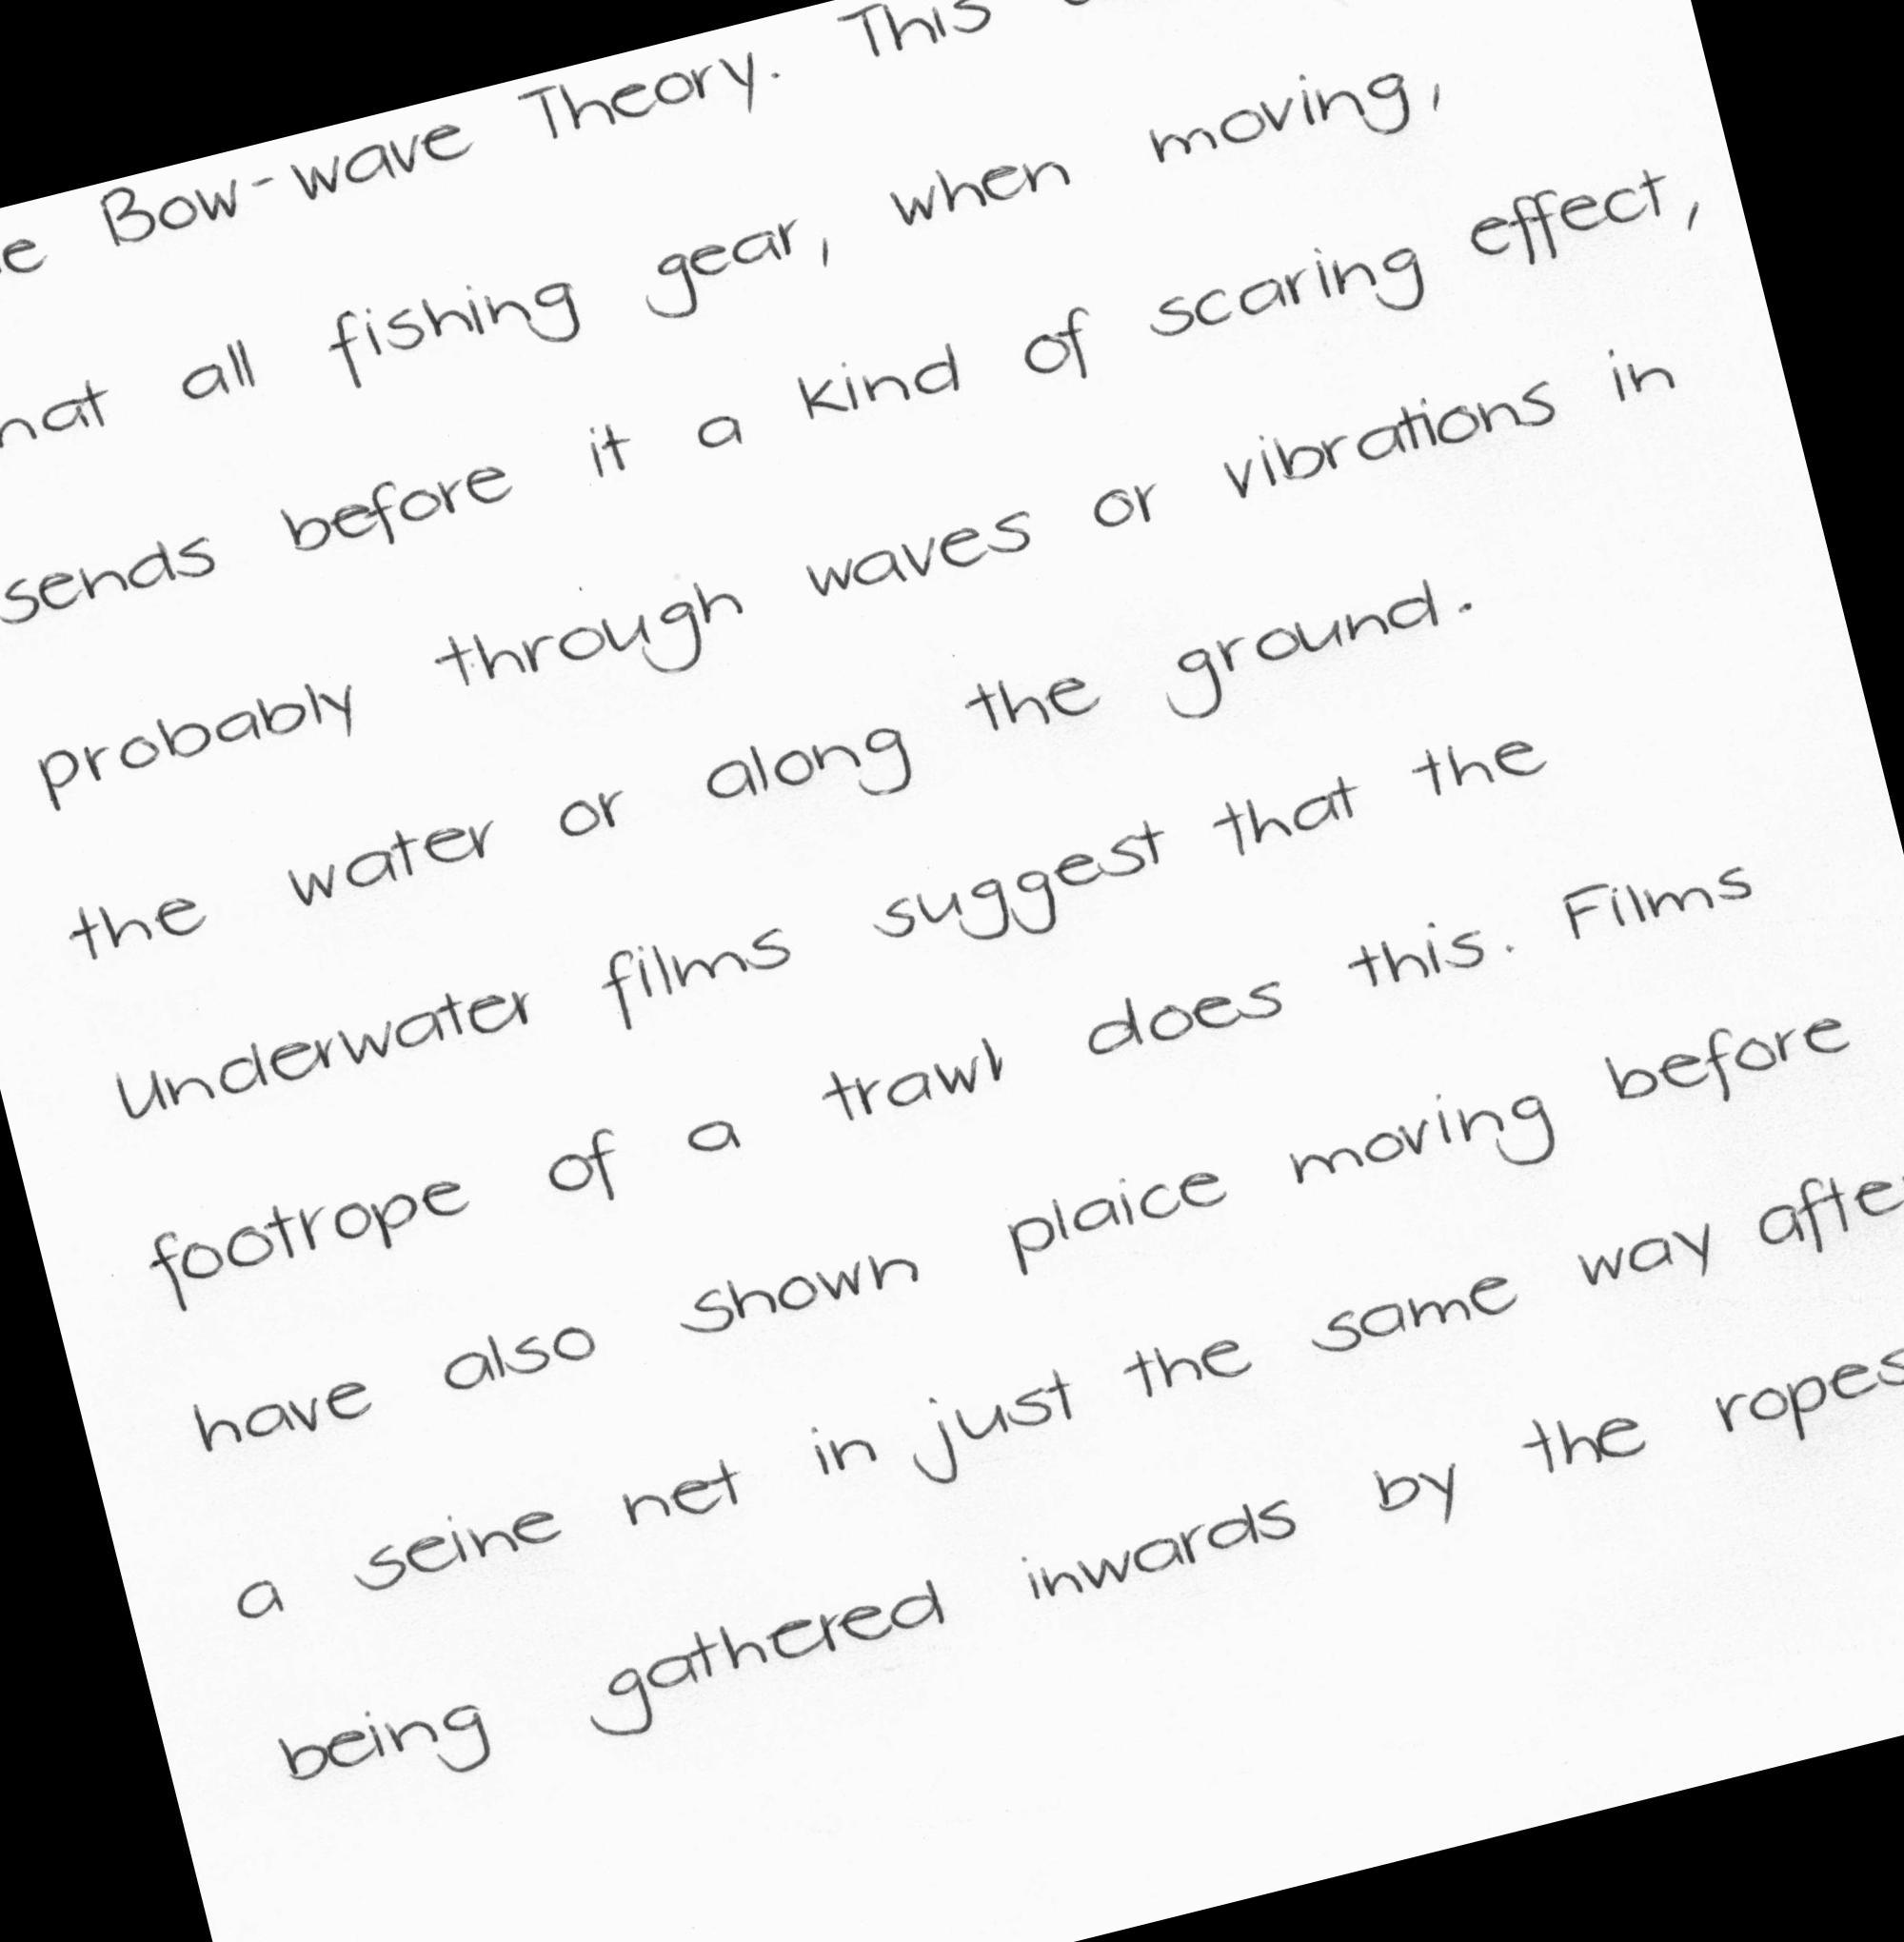 Bow-wave Theory. This
all fishing gear, when moving,
sends before it a kind of scaring effect,
probably through waves or vibrations in
the water or along the ground.
Underwater films suggest that the
footrope of a trawl does this. Films
have also shown plaice moving before
a seine net in just the same way
being gathered inwards by the ropes